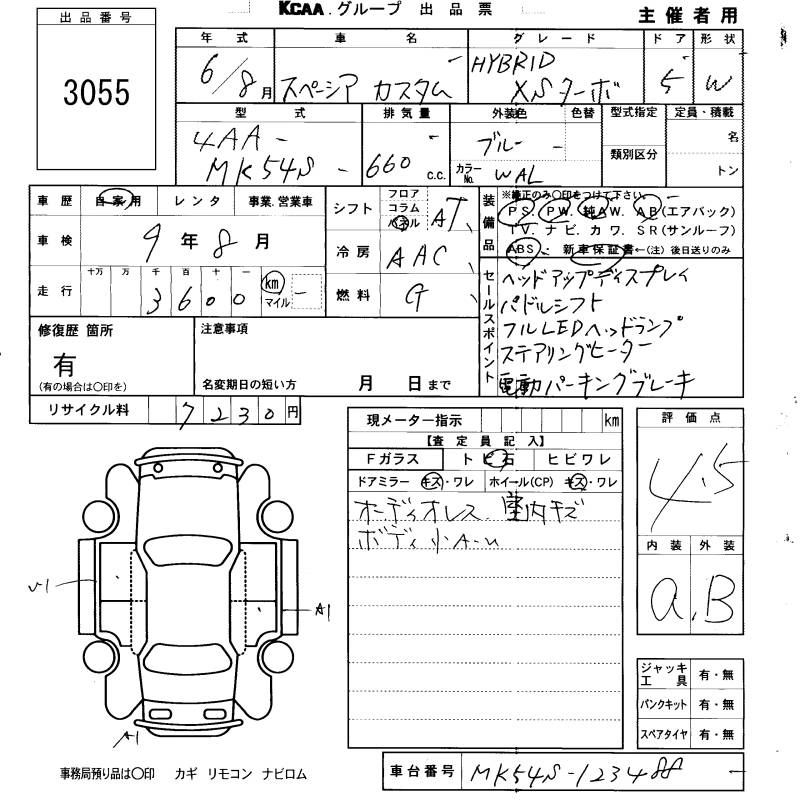 KCAA.グループ 出品票
主催者用
出品番号
3055
年式 車名 グレード ドア 形状
6/8月 スペーシア カスタム HYBRID XSターボ 5 W
型式 排気量 外装色 色替 型式指定 定員・積載
4AA- MK54S 660 c.c. ブルー カラーNo. WAL 類別区分 名 トン
車歴 自家用 レンタ 事業.営業車
車検 9年8月
走行 十万 万 千 百 十 一 3600 km マイル
シフト フロア コラム パネル AT
冷房 AAC
燃料 G
装備品 ※純正のみ○印をつけて下さい
PS. PW. 純AW. AB(エアバック)
TV. ナビ. カワ. SR(サンルーフ)
ABS. 新車保証書←(注) 後日送りのみ
セールスポイント
ヘッドアップディスプレイ
パドルシフト
フルLEDヘッドランプ
ステアリングヒーター
電動パーキングブレーキ
修復歴 箇所
有
(有の場合は○印を)
注意事項
名変期日の短い方 月 日まで
リサイクル料 7230円
現メーター指示 km
【査定員記入】
Fガラス トビ石 ヒビワレ
ドアミラー キズ・ワレ ホイール(CP) キズ・ワレ
オーディオレス. 室内キズ
ボディ小A-U
評価点
4.5
内装 外装
a. B
A1
A1
ジャッキ工具 有・無
パンクキット 有・無
スペアタイヤ 有・無
事務局預り品は○印 カギ リモコン ナビロム
車台番号 MK54S-123488